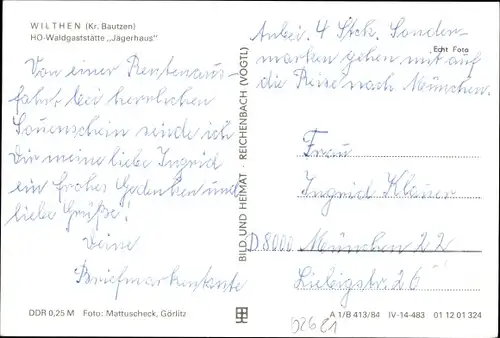 WILTHEN (Kr. Bautzen)
HO-Waldgaststätte „Jägerhaus"
Von einer Rentenaus-
fahrt bei herrlichen
Sonenschein sende ich
Dir meine liebe Ingrid
ein frohes Gedenken und
liebe Grüße!
Deine
Briefmarkentante
DDR 0,25 M Foto: Mattuscheck, Görlitz
BILD UND HEIMAT · REICHENBACH (VOGTL)
Anbei 4 Stck. Sonder-
marken gehen mit auf
Echt Foto
die Reise nach München.
Frau
Ingrid Klauer
D 8000 München 22
Liebigstr. 26
A 1/B 413/84 IV-14-483 01 12 01 324
02621